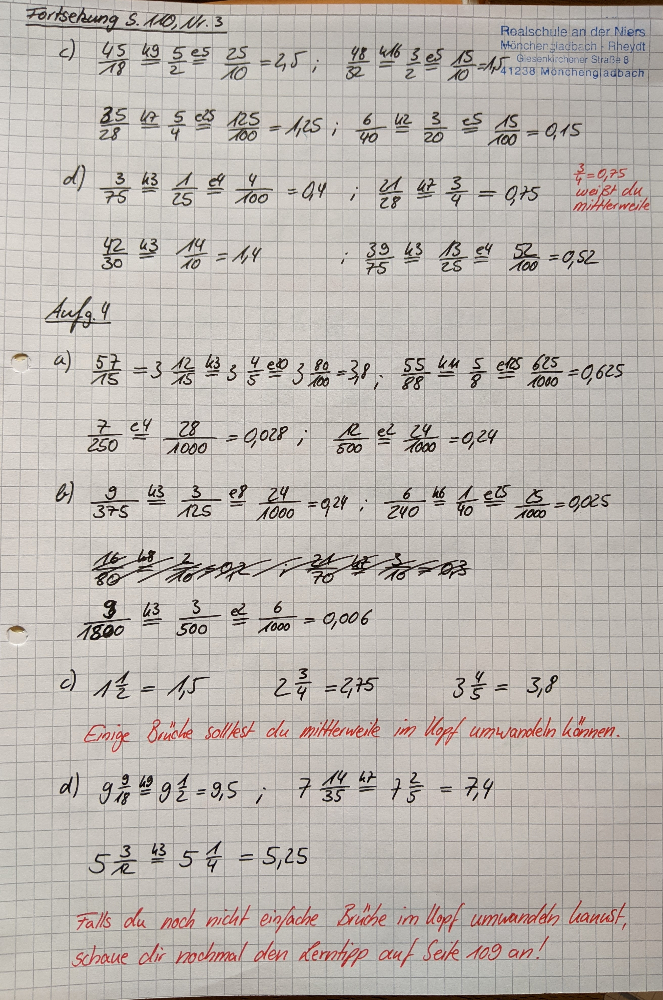 Fortsetzung S. 110, Nr. 3
Realschule an der Niers
Mönchengladbach - Rheydt
Giesenkirchener Straße 8
41238 Mönchengladbach
c) 45/18 k9= 5/2 e5= 25/10 = 2,5 ; 48/32 k16= 3/2 e5= 15/10 = 1,5
35/28 k7= 5/4 e25= 125/100 = 1,25 ; 6/40 k2= 3/20 e5= 15/100 = 0,15
d) 3/75 k3= 1/25 e4= 4/100 = 0,4 ; 21/28 k7= 3/4 = 0,75
3/4 = 0,75
weißt du
mittlerweile
42/30 k3= 14/10 = 1,4 ; 39/75 k3= 13/25 e4= 52/100 = 0,52
Aufg. 4
a) 57/15 = 3 12/15 k3= 3 4/5 e20= 3 80/100 = 3,8 ; 55/88 k11= 5/8 e125= 625/1000 = 0,625
7/250 e4= 28/1000 = 0,028 ; 12/500 e2= 24/1000 = 0,24
b) 9/375 k3= 3/125 e8= 24/1000 = 0,24 ; 6/240 k6= 1/40 e25= 25/1000 = 0,025
16/80 k8= 2/10 = 0,2 ; 21/70 k7= 3/10 = 0,3
9/1800 k3= 3/500 e2= 6/1000 = 0,006
c) 1 1/2 = 1,5 2 3/4 = 2,75 3 4/5 = 3,8
Einige Brüche solltest du mittlerweile im Kopf umwandeln können.
d) 9 9/18 k9= 9 1/2 = 9,5 ; 7 14/35 k7= 7 2/5 = 7,4
5 3/12 k3= 5 1/4 = 5,25
Falls du noch nicht einfache Brüche im Kopf umwandeln kannst,
schaue dir nochmal den Lerntipp auf Seite 109 an!